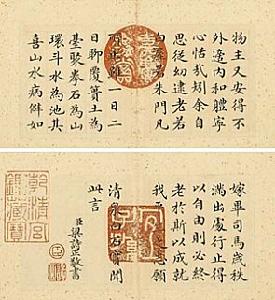 物主又安得不
外適內和體寧
心恬哉矧余自
思從幼逮老若
白屋若朱門凡
所止雖一日二
日聊覆簣土為
臺聚拳石為山
環斗水為池其
喜山水病癖如
嫁畢司馬歲秩
滿出處行止得
以自由則必終
老於斯以成就
我 之志願
清泉白石實聞
此言
臣梁詩正敬書
宜子孫
乾清宮鑑藏寶